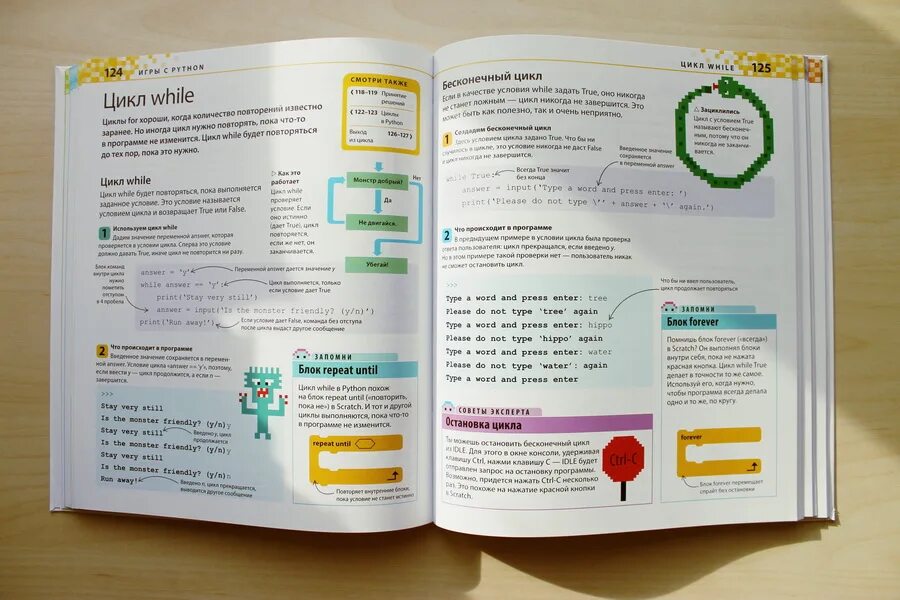 124 ИГРЫ С PYTHON
Цикл while
Циклы for хороши, когда количество повторений известно
заранее. Но иногда цикл нужно повторять, пока что-то
в программе не изменится. Цикл while будет повторяться
до тех пор, пока это нужно.
СМОТРИ ТАКЖЕ
‹ 118–119 Принятие
решений
‹ 122–123 Циклы
в Python
Выход 126–127 ›
из цикла
Цикл while
Цикл while будет повторяться, пока выполняется
заданное условие. Это условие называется
условием цикла и возвращает True или False.
1 Используем цикл while
Дадим значение переменной answer, которая
проверяется в условии цикла. Сперва это условие
должно давать True, иначе цикл не повторится ни разу.
▷ Как это
работает
Цикл while
проверяет
условие. Если
оно истинно
(дает True), цикл
повторяется,
если же нет, он
заканчивается.
Монстр добрый?
Нет
Да
Не двигайся.
Убегай!
Блок команд
внутри цикла
нужно
пометить
отступом
в 4 пробела
answer = 'y'
Переменной answer дается значение y
while answer == 'y':
Цикл выполняется, только
если условие дает True
print('Stay very still')
answer = input('Is the monster friendly? (y/n)')
print('Run away!')
Если условие дает False, команда без отступа
после цикла выдаст другое сообщение
2 Что происходит в программе
Введенное значение сохраняется в перемен-
ной answer. Условие цикла «answer == 'y'», поэтому,
если ввести y — цикл продолжается, а если n —
завершится.
>>>
Stay very still
Is the monster friendly? (y/n)y
Stay very still
Введено y, цикл
продолжается
Is the monster friendly? (y/n)y
Stay very still
Is the monster friendly? (y/n)n
Run away!
Введено n, цикл прекращается,
выводится другое сообщение
ЗАПОМНИ
Блок repeat until
Цикл while в Python похож
на блок repeat until («повторить,
пока не») в Scratch. И тот и другой
циклы выполняются, пока что-то
в программе не изменится.
repeat until
Повторяет внутренние блоки,
пока условие не станет истинно
ЦИКЛ WHILE 125
Бесконечный цикл
Если в качестве условия while задать True, оно никогда
не станет ложным — цикл никогда не завершится. Это
может быть как полезно, так и очень неприятно.
1 Создадим бесконечный цикл
Здесь условием цикла задано True. Что бы ни
случилось в цикле, это условие никогда не даст False
и цикл никогда не завершится.
Введенное значение
сохраняется
в переменной answer
while True:
Всегда True значит
без конца
answer = input('Type a word and press enter: ')
print('Please do not type \'' + answer + '\' again.')
△ Зациклились
Цикл с условием True
называют бесконеч-
ным, потому что он
никогда не заканчи-
вается.
2 Что происходит в программе
В предыдущем примере в условии цикла была проверка
ответа пользователя: цикл прекращался, если введено y.
Но в этом примере такой проверки нет — пользователь никак
не сможет остановить цикл.
>>>
Type a word and press enter: tree
Please do not type 'tree' again
Type a word and press enter: hippo
Please do not type 'hippo' again
Type a word and press enter: water
Please do not type 'water': again
Type a word and press enter
Что бы ни ввел пользователь,
цикл продолжает повторяться
ЗАПОМНИ
Блок forever
Помнишь блок forever («всегда»)
в Scratch? Он выполнял блоки
внутри себя, пока не нажата
красная кнопка. Цикл while True
делает в точности то же самое.
Используй его, когда нужно,
чтобы программа всегда делала
одно и то же, по кругу.
forever
Блок forever перемещает
спрайт без остановки
СОВЕТЫ ЭКСПЕРТА
Остановка цикла
Ты можешь остановить бесконечный цикл
из IDLE. Для этого в окне консоли, удерживая
клавишу Ctrl, нажми клавишу C — IDLE будет
отправлен запрос на остановку программы.
Возможно, придется нажать Ctrl-C несколько
раз. Это похоже на нажатие красной кнопки
в Scratch.
Ctrl-C